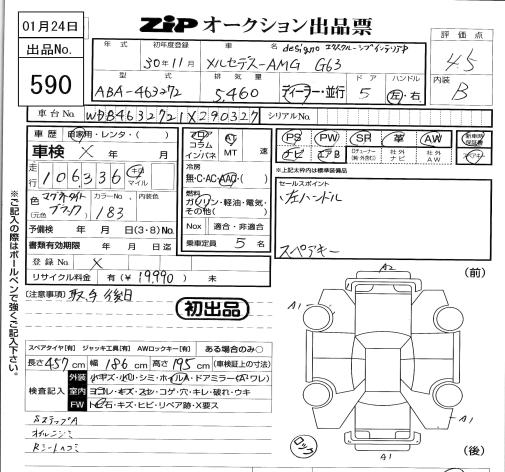 01月24日
出品No.
590
ZiP オークション出品票
評価点
4.5
内装
B
年式
初年度登録
30年11月
車名
designo エクスクルーシブインテリア中
メルセデス-AMG G63
型式
ABA-463272
排気量
5,460
ディーラー・並行
ドア
5
ハンドル
左・右
車台No.
WDB4632721X290327
シリアルNo.
車歴
自家用・レンタ・( )
車検 X 年 月
走行
106,336
キロ
マイル
色
マグネタイトブラック
(元色 )
カラーNo.
183
内装色
予備検 年 月 日(3・8)No.
書類有効期限 年 月 日迄
登録No. X
リサイクル料金 有(¥19,990)未
フロア
コラム
インパネ
AT
MT
速
冷房
無・C・AC・AAC・( )
燃料
ガソリン・軽油・電気・
その他( )
Nox 適合・非適合
乗車定員 5 名
PS PW SR 革 AW
新車時保証書
ナビ エアB
社外ナビ
社外AW
*上記太枠内は標準装備品
セールスポイント
左ハンドル
スペアキー
[注意事項]
取・予 後日
初出品
スペアタイヤ[有] ジャッキ工具[有] AWロックキー[有] ある場合のみ○
長さ 457 cm 幅 186 cm 高さ 195 cm (車検証上の寸法)
検査記入
外装 小キズ・小凹・シミ・ホイルA・ドアミラー(A・ワレ)
室内 ヨゴレ・キズ・スレ・コゲ・穴・キレ・破れ・ウキ
FW トビ石・キズ・ヒビ・リペア跡・X要ス
SステップA
オイルニジミ
(前)
A2
A1
A1
A1
(後)
※ご記入の際はボールペンで強くご記入下さい。